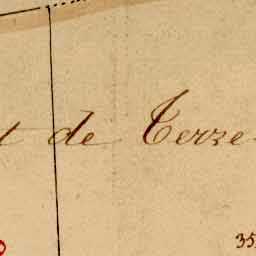 t de Terre
35